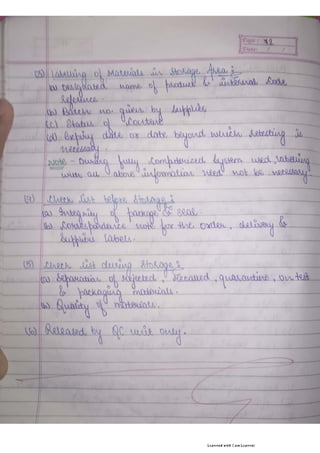 Page: 42
Date: / /
(3) Labelling of Materials in Storage Area :
(a) Designated name of product & internal Code
reference.
(b) Batch no. given by supplier
(c) Status of Content
(d) Expiry date or date beyond which retesting is
necessary.
NOTE - During fully computerized system used, labelling
with all above information need not be necessary.
(4) Check list before Storage :
(a) Integrity of package & seal.
(b) Correspondance note for the order, delivery &
suppliers labels.
(5) Check list during Storage :
(a) Separation of rejected, recalled, quarantine, on test
& packaging materials.
(b) Quality of materials.
(6) Released by QC unit only.
Scanned with CamScanner